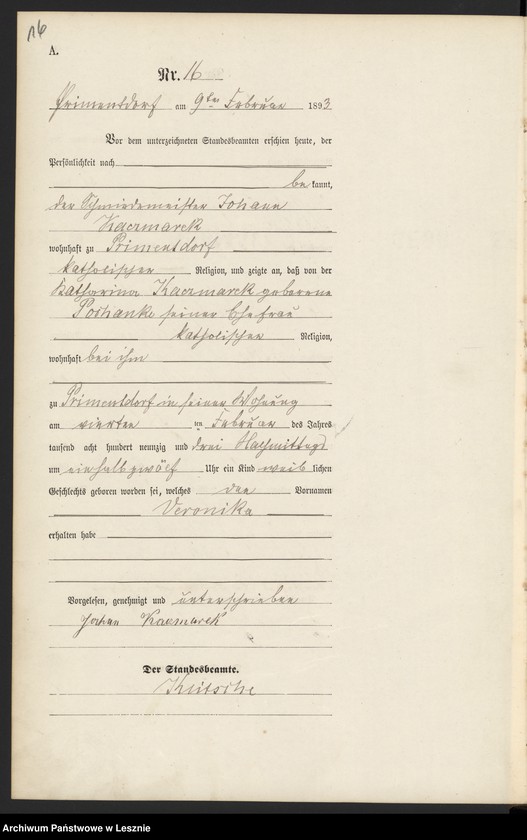 16
A.
Nr. 16
Primentdorf am 9ten Februar 1893
Vor dem unterzeichneten Standesbeamten erschien heute, der
Persönlichkeit nach
be kannt,
der Schmiedemeister Johann
Kaczmarek
wohnhaft zu Primentdorf
katholischer Religion, und zeigte an, daß von der
Katharina Kaczmarek geborene
seiner Ehefrau
katholischer Religion,
wohnhaft bei ihm
zu Primentdorf in seiner Wohnung
am vierten ten Februar des Jahres
tausend acht hundert neunzig und drei Nachmittags
um einhalb zwölf Uhr ein Kind weib lichen
Geschlechts geboren worden sei, welches den Vornamen
Veronika
erhalten habe
Vorgelesen, genehmigt und unterschrieben
Johan Kacmarek
Der Standesbeamte.
Archiwum Państwowe w Lesznie